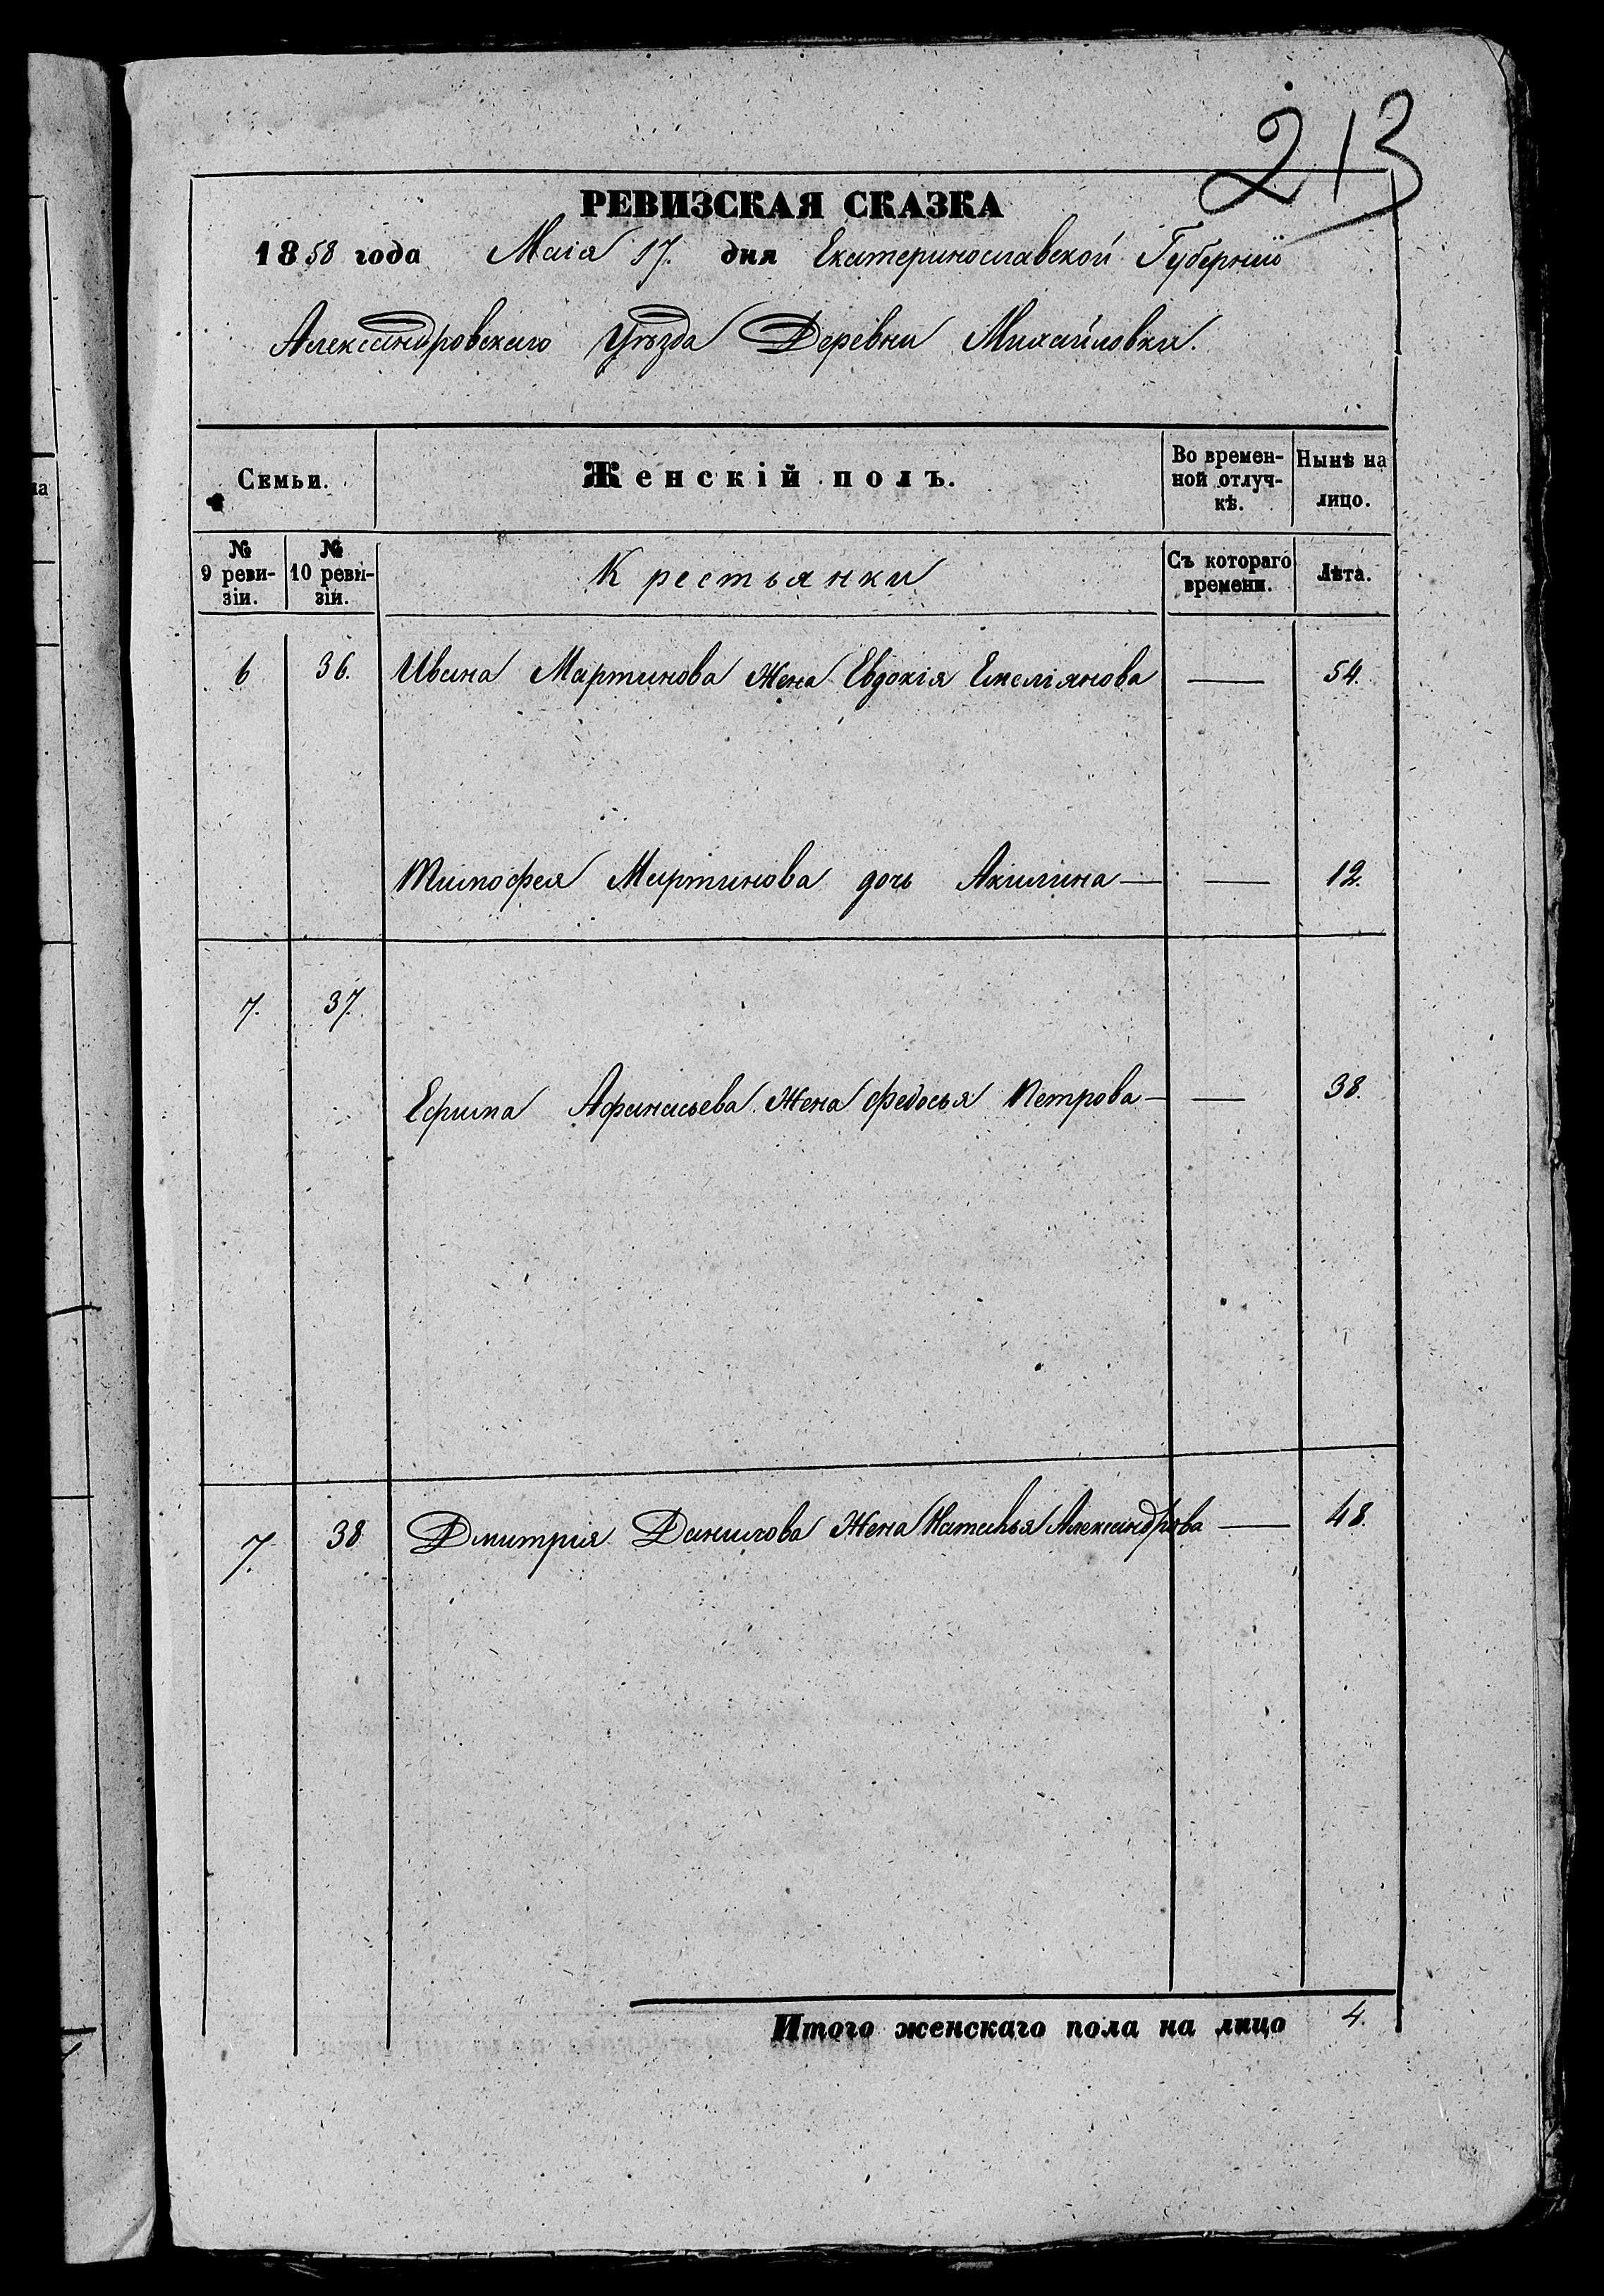 213
РЕВИЗСКАЯ СКАЗКА
1858 года Маія 17. дня Екатеринославской Губерніи
Александровскаго Уѣзда Деревни Михайловки.
Семьи. Женскій полъ. Во времен-ной отлуч-кѣ. Нынѣ на лицо.
№ 9 реви-зіи. № 10 реви-зіи. Крестьянки Съ котораго времени. Лѣта.
6 36. Ивана Мартинова жена Евдокія Емеліянова — 54.
Тимофея Мартинова дочь Акилина — — 12.
7. 37.
Ефима Афанасьева жена Федосья Петрова — — 38.
7. 38 Дмитрія Данилова жена Наталья Александрова — 48.
Итого женскаго пола на лицо 4.